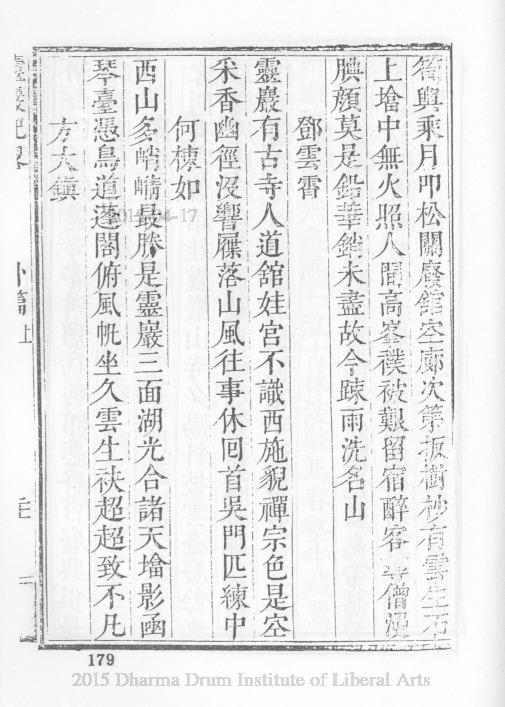 筍輿乘月叩松關廢舘空廊次第扳樹杪有雲生石
上墖中無火照人間高峯襆被艱留宿醉客尋僧漫
腆顔莫是鉛華銷未盡故令踈雨洗名山
鄧雲霄
靈巖有古寺人道舘娃宮不識西施貌禪宗色是空
采香幽徑沒響屧落山風往事休囘首吳門匹練中
何棟如
西山多峭蒨最勝是靈巖三面湖光合諸天墖影函
琴臺憑鳥道蓬閣俯風帆坐久雲生袂超超致不凡
方大鎮
靈巖記畧
外篇
179
2015 Dharma Drum Institute of Liberal Arts